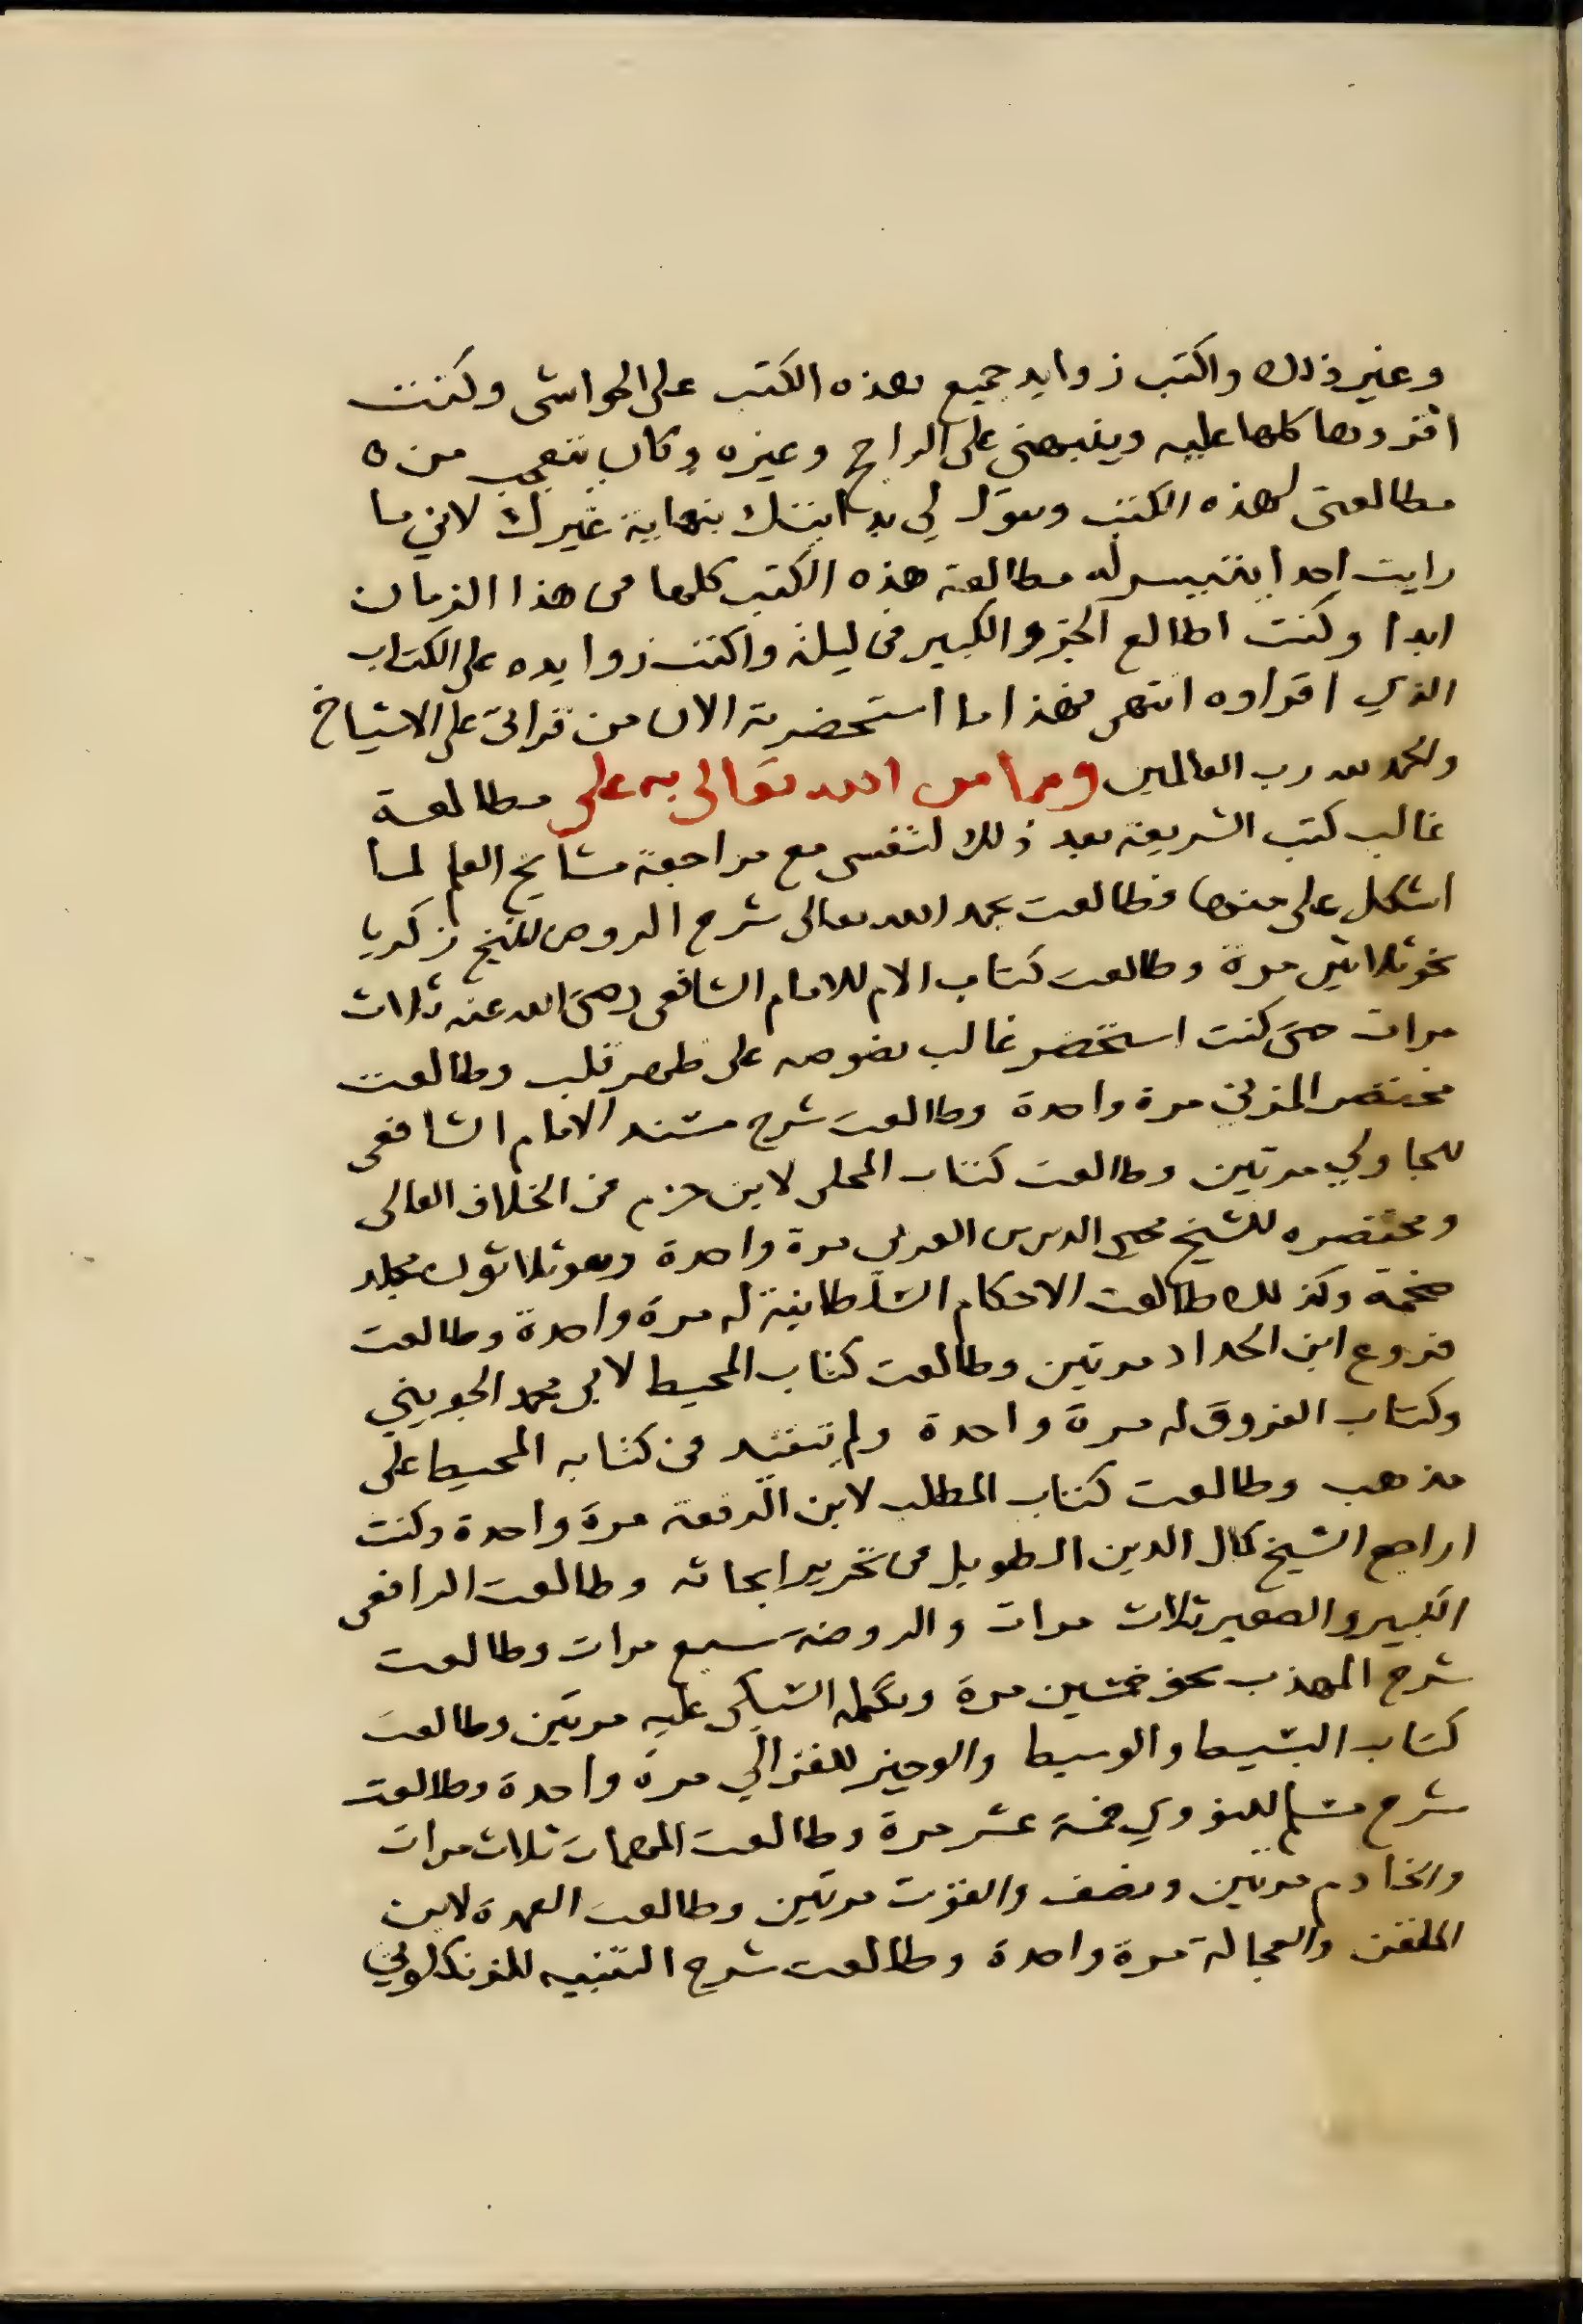 وغير ذلك واكتب زوايد جميع هذه الكتب على الحواشى وكنت
اقروها كلها عليه وينبهنى على الراجح وغيره وكان يتعجب من ه
مطالعتى لهذه الكتب ويقول لي بدايتك بنهاية غيرك لاني ما
رايت احدا يتيسر له مطالعة هذه الكتب كلها فى هذا الزمان
ابدا وكنت اطالع الجزو الكبير فى ليلة واكتب زوايده على الكتاب
الذي اقراوه انتهى فهذا ما استحضرته الان من قراتى على الاشياخ
والحمد لله رب العالمين ومما من الله تعالى به على مطالعة
غالب كتب الشريعة بعد ذلك لنفسى مع مراجعة مشايخ العلم لما
اشكل على منها فطالعت بحمد الله تعالى شرح الروض للشيخ زكريا
نحو ثلاثين مرة وطالعت كتاب الام للامام الشافعى رضى الله عنه ثلاث
مرات حتى كنت استحضر غالب نصوصه على ظهر قلب وطالعت
مختصر المزني مرة واحدة وطالعت شرح مسند الامام الشافعى
للجاولي مرتين وطالعت كتاب المحلى لابن حزم فى الخلاف العالى
ومختصره للشيخ محيى الدين العربى مرة واحدة وهو ثلاثون مجلد
ضخمة وكذلك طالعت الاحكام السلطانية له مرة واحدة وطالعت
فروع ابن الحداد مرتين وطالعت كتاب المحيط لابى محمد الجويني
وكتاب الفروق له مرة واحدة ولم يتقيد فى كتابه المحيط على
مذهب وطالعت كتاب المطلب لابن الرفعة مرة واحدة وكنت
اراجع الشيخ كمال الدين الطويل فى تحرير ابحاثه وطالعت الرافعى
الكبير والصغير ثلاث مرات والروضة سبع مرات وطالعت
شرح المهذب نحو خمسين مرة وتكملة السبكى عليه مرتين وطالعت
كتاب البسيط والوسيط والوجيز للغزالي مرة واحدة وطالعت
شرح مسلم للنووي خمسة عشر مرة وطالعت المهمات ثلاث مرات
والخادم مرتين ونصف والقوت مرتين وطالعت العمدة لابن
الملقن والعجالة مرة واحدة وطالعت شرح التنبيه للزنكلوني